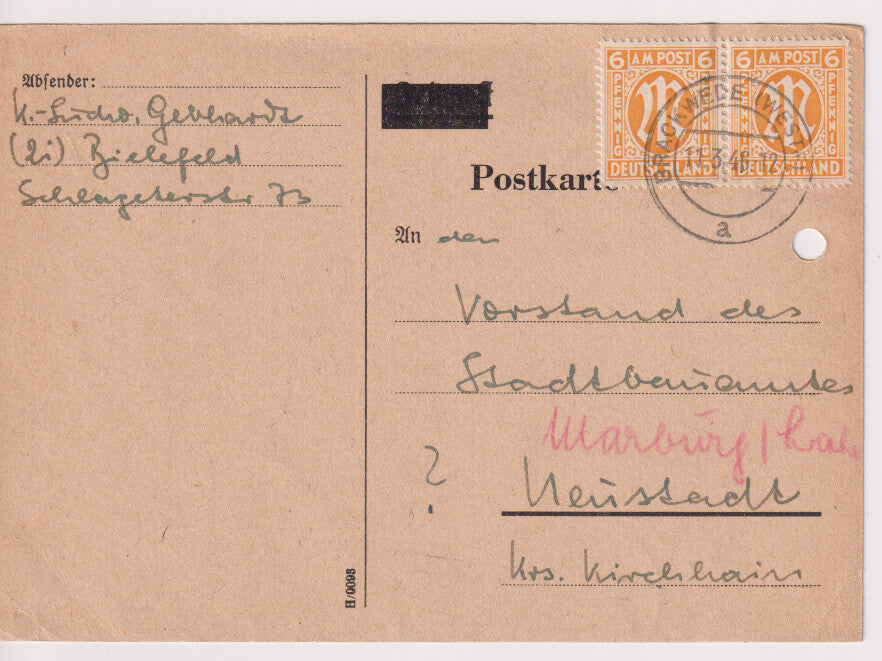 Absender:
K.-Ludw. Gebhardt
(21) Bielefeld
Schlageterstr 73
6 AM POST 6
PFENNIG
DEUTSCHLAND
6 AM POST 6
PFENNIG
DEUTSCHLAND
BRACKWEDE (WESTF
11.3.46.12
a
Postkarte
An den
Vorstand des
Stadtbauamtes
Marburg / Lah
?
Neustadt
Krs. Kirchhain
H/0098